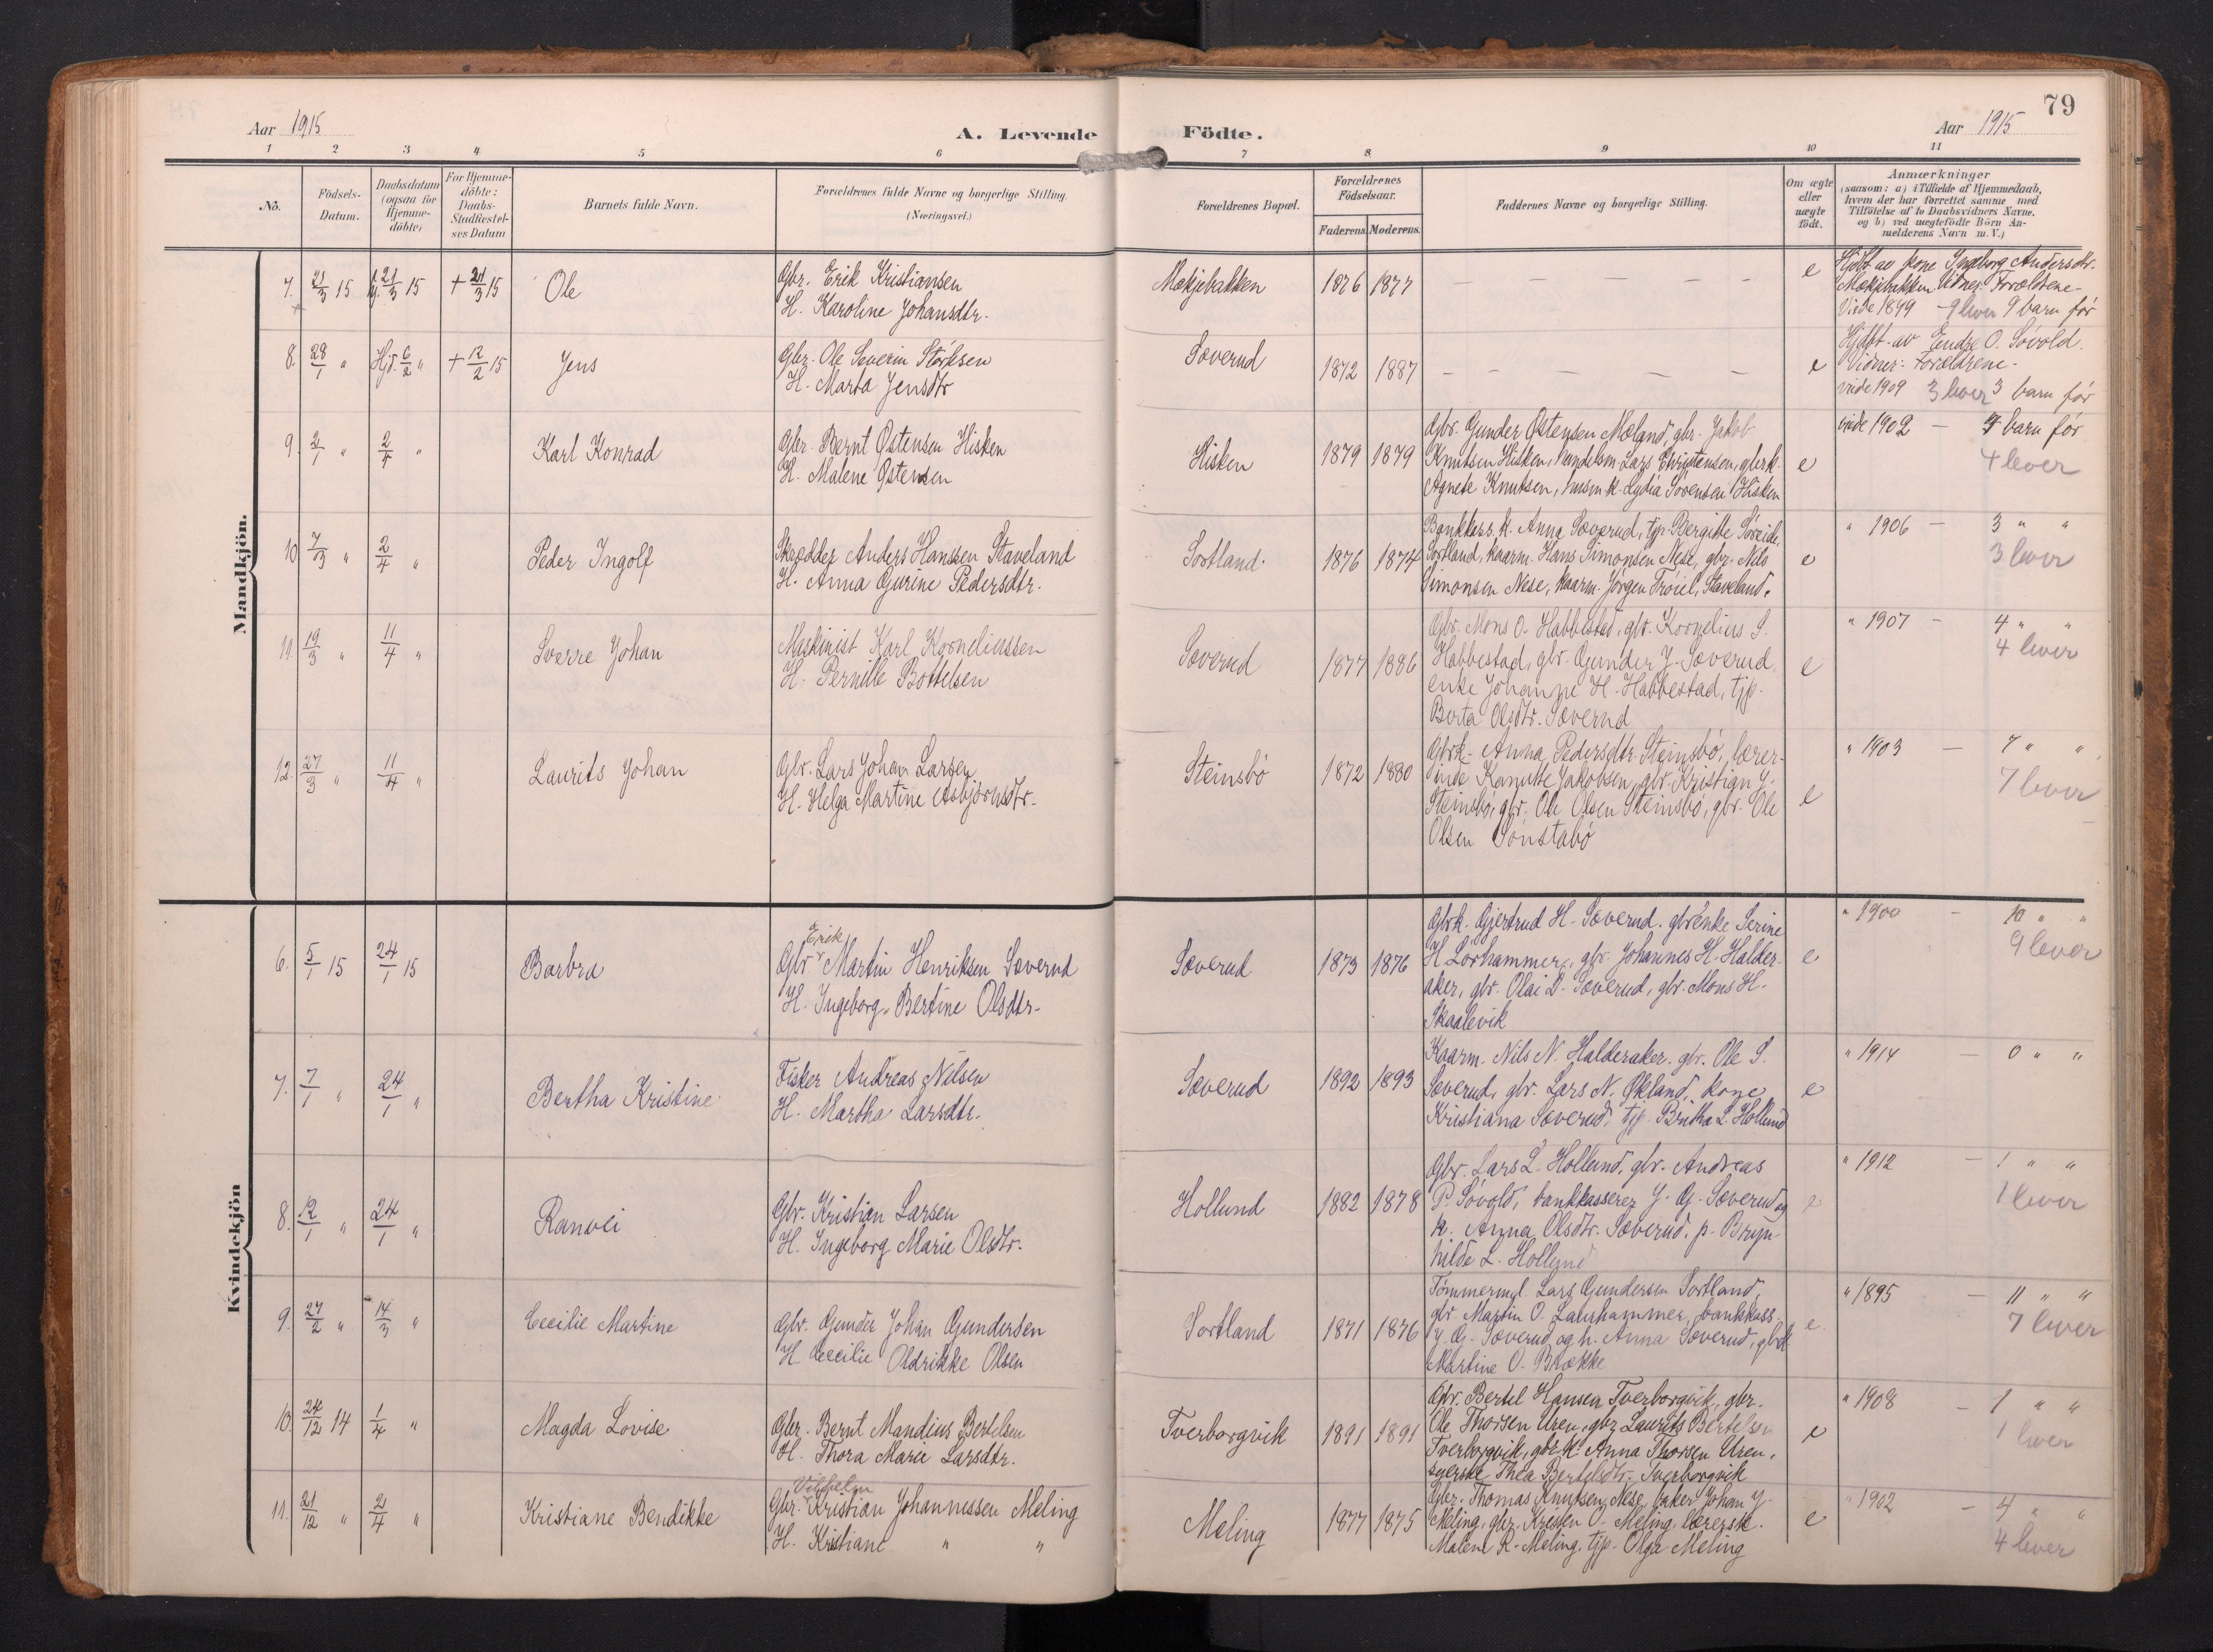 79
Aar 1915
A. Levende
Födte.
Aar 1915
1 2 3 4 5 6 7 8 9 10 11
No.
Födsels-Datum.
Daabsdatum (ogsaa for Hjemme-döbte)
For Hjemme-döbte: Daabs-Stadfæstel-ses Datum
Barnets fulde Navn.
Forældrenes fulde Navne og borgerlige Stilling. (Næringsvei.)
Forældrenes Bopæl.
Forældrenes Födselsaar.
Faderens. Moderens.
Faddernes Navne og borgerlige Stilling.
Om ægte eller uægte födt.
Anmærkninger
(saasom: a) i Tilfælde af Hjemmedaab,
hvem der har forrettet samme med
Tilföielse af to Daabsvidners Navne.
og b) ved uægtefödte Börn An-
melderens Navn m. V.)
Mandkjön.
7. 21/3 15 21/3 15 + 24/3 15 Ole
Gbr. Erik Kristiansen
H. Karoline Johansdtr.
Mækjebakken 1876 1877 e
Hjdbt av kone Ingeborg Andersdtr.
Mækjebakken. Vidner: Forældrene-
Viede 1899 - 9 lever 9 barn før
8. 28/1 " Hjd. 6/2 " + 12/2 15 Jens
Gbr. Ole Severin Størksen
H. Marta Jensdtr
Sæverud 1872 1887 e
Hjdbt. av Endre O. Søvold.
Vidner: Forældrene.
viede 1909 3 lever 3 barn før
9. 2/1 " 2/4 " Karl Konrad
Gbr. Bernt Østensen Hisken
H. Malene Østensen
Hisken 1879 1879
Gbr. Gunder Østensen Mæland, gbr. Jakob
Knutsen Hisken, handelsm. Lars Christensen, gbrk.
Agnete Knutsen, husm.k. Lydia Sørensen Hisken
e
viede 1902 - 4 barn før
4 lever
10 7/3 " 2/4 " Peder Ingolf
Skrædder Anders Hanssen Staveland
H. Anna Gurine Pedersdtr.
Sortland. 1876 1874
Bankkass. k. Anna Sæverud, tjp. Bergitte Søreide,
Sortland, kaarm. Hans Simonsen Nese, gbr. Nils
Simonsen Nese, kaarm. Jørgen Frøiel, Staveland.
e
" 1906 - 3 " "
3 lever
11. 19/3 " 11/4 " Sverre Johan
Maskinist Karl Korneliussen
H. Pernille Bottelsen
Sæverud 1877 1886
Gbr. Mons O. Habbestad, gbr. Kornelius S.
Habbestad, gbr. Gunder J. Sæverud.
enke Johanne H. Habbestad, tjp.
Berta Olsdtr. Sæverud
e
" 1907 - 4 " "
4 lever
12. 27/3 " 11/4 " Laurits Johan
Gbr. Lars Johan Larsen
H. Helga Martine Asbjørnsdtr.
Steinsbø 1872 1880
Gbrk. Anna Pedersdtr. Steinsbø, lærer-
inde Kanutte Jakobsen, gbr. Kristian J.
Steinsbø, gbr. Ole Olsen Steinsbø, gbr. Ole
Olsen Sønstabø
e
" 1903 - 7 " "
7 lever
Kvindekjön
6. 5/1 15 24/1 15 Barbra
Erik
Gbr. Martin Henriksen Sæverud
H. Ingeborg Bertine Olsdtr.
Sæverud 1873 1876
Gbrk. Gjertrud H. Sæverud. gbrenke Serine
H. Lørhammer, gbr. Johannes H. Halder-
aker, gbr. Olai D. Sæverud, gbr. Mons H.
Skaalevik
e
" 1900 - 10 " "
9 lever
7. 7/1 " 24/1 " Bertha Kristine
Fisker Andreas Nilsen
H. Martha Larsdtr.
Sæverud 1892 1893
Kaarm. Nils N. Halderaker. gbr. Ole S.
Sæverud, gbr. Lars N. Økland, kone
Kristiana Sæverud. tjp. Britha L. Hollund
e
" 1914 - 0 " "
8. 12/1 " 24/1 " Ranvei
Gbr. Kristian Larsen
H. Ingeborg Marie Olsdtr.
Hollund 1882 1878
Gbr. Lars L. Hollund, gbr. Andreas
P. Søvold, bankkasserer J. G. Sæverud og
k. Anna Olsdtr. Sæverud. p. Bryn-
hilde L. Hollund
e
" 1912 - 1 " "
1 lever
9. 27/2 " 14/3 " Cecilie Martine
Gbr. Gunder Johan Gundersen
H. Cecilie Oldrikke Olsen
Sortland 1871 1876
Tømmerm. Lars Gundersen Sortland,
gbr Martin O. Laurhammer, bankkass.
J. G. Sæverud og h. Anna Sæverud, gbrk
Martine O. Brække
e
" 1895 - 11 " "
7 lever
10. 24/12 14 1/4 " Magda Lovise
Gbr. Bernt Mandius Bertelsen
H. Thora Marie Larsdtr.
Tverborgvik 1891 1891
Gbr. Bertel Hansen Tverborgvik, gbr.
Ole Thorsen Uren, gbr. Laurits Bertelsen
Tverborgvik, gbr.k. Anna Thorsen Uren,
syerske Thea Bertelsdtr. Tverborgvik
e
" 1908 - 1 " "
1 lever
11. 21/12 " 2/4 " Kristiane Bendikke
Vilhelm
Gbr. Kristian Johannessen Meling
H. Kristiane " "
Meling 1877 1875
Gbr. Thomas Knutsen Nese, baker Johan J.
Meling, gbr. Kristen O. Meling, lærersk.
Malene K. Meling, tjp. Olga Meling
e
" 1902 - 4 " "
4 lever